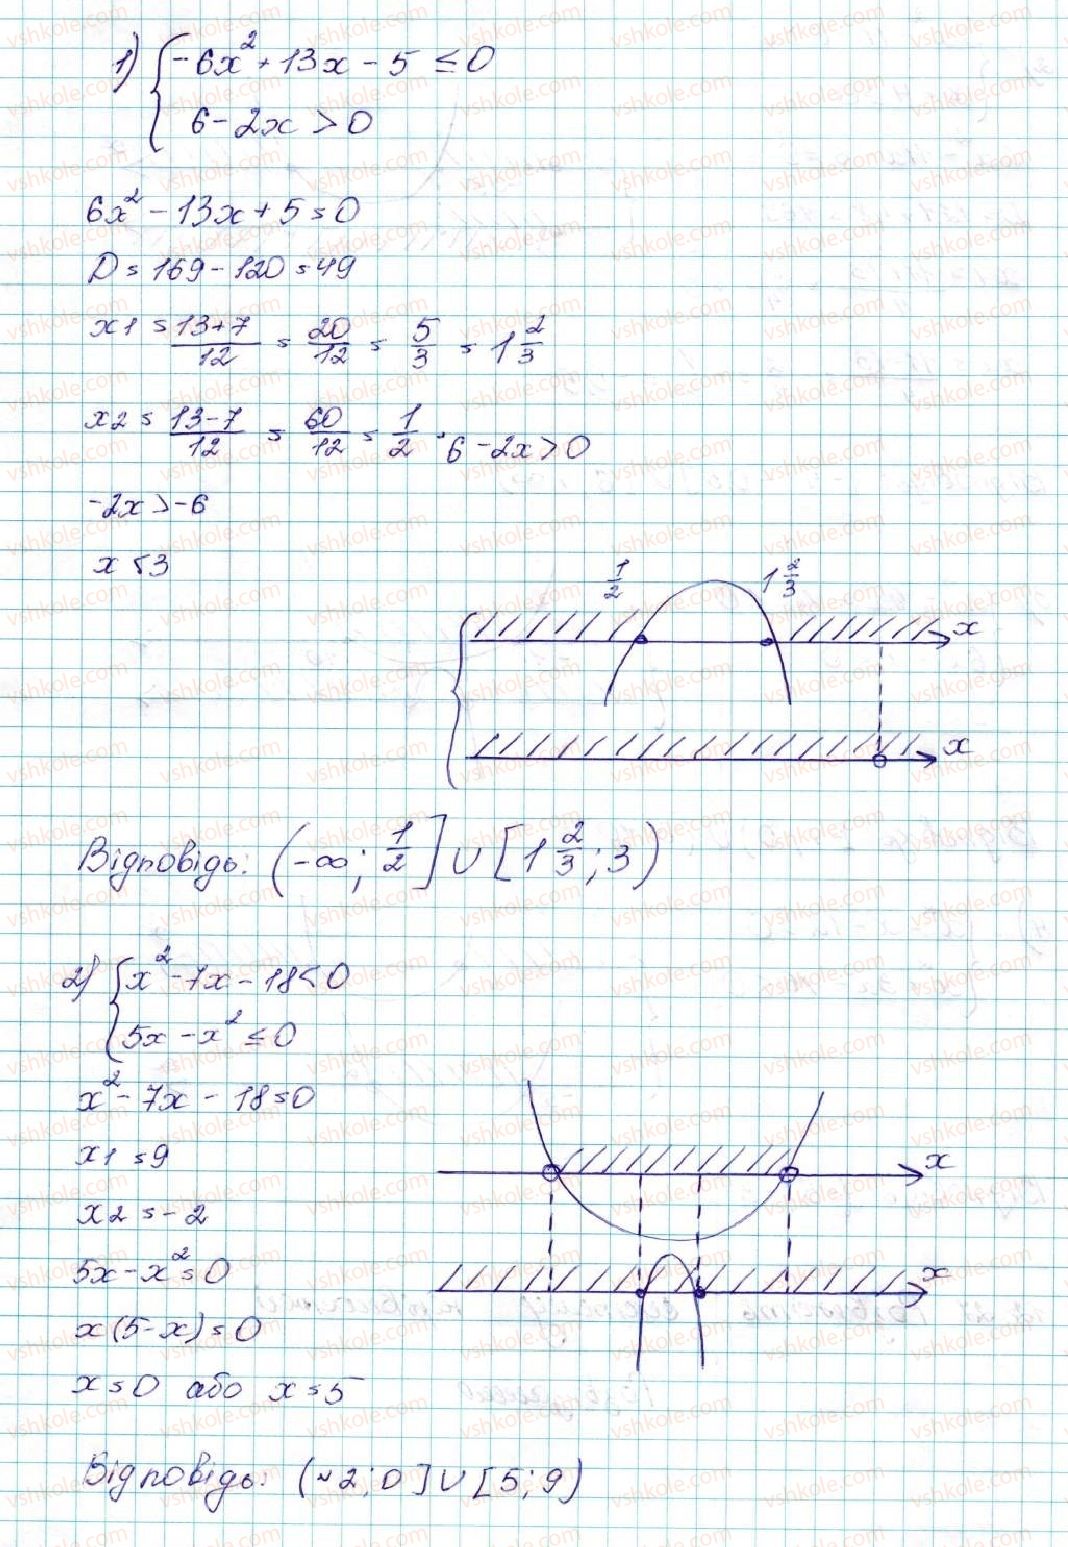 1) { -6x² + 13x - 5 ≤ 0
6 - 2x > 0
6x² - 13x + 5 = 0
D = 169 - 120 = 49
x1 = 13+7/12 = 20/12 = 5/3 = 1 2/3
x2 = 13-7/12 = 60/12 = 1/2 . 6 - 2x > 0
-2x > -6
x < 3
1/2 1 2/3
x
x
Відповідь: (-∞; 1/2] ∪ [1 2/3; 3)
2) { x² - 7x - 18 < 0
5x - x² ≤ 0
x² - 7x - 18 = 0
x1 = 9
x
x2 = -2
5x - x² = 0
x
x(5-x) = 0
x = 0 або x = 5
Відповідь: (-2; 0] ∪ [5; 9)
vshkole.com